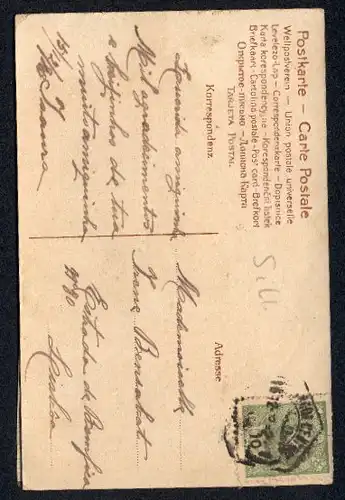 Postkarte — Carte Postale
Weltpostverein — Union postale universelle
Levelező-Lap — Correspondenzkarte — Dopisnice
Karta korespondencyjna — Korespondenční listek
Briefkaart — Cartolina postale — Post card — Brefkort
Открытое письмо — Дописна Карта
TARJETA POSTAL
Korrespondenz.
Querida amiguinha
Mil agradecimentos
e beijinhos da tua
muito amiguinha
Laura
15/1/07
Adresse
Mademoiselle
Irene Bensabat
Estrada de Bemfica
Lisboa